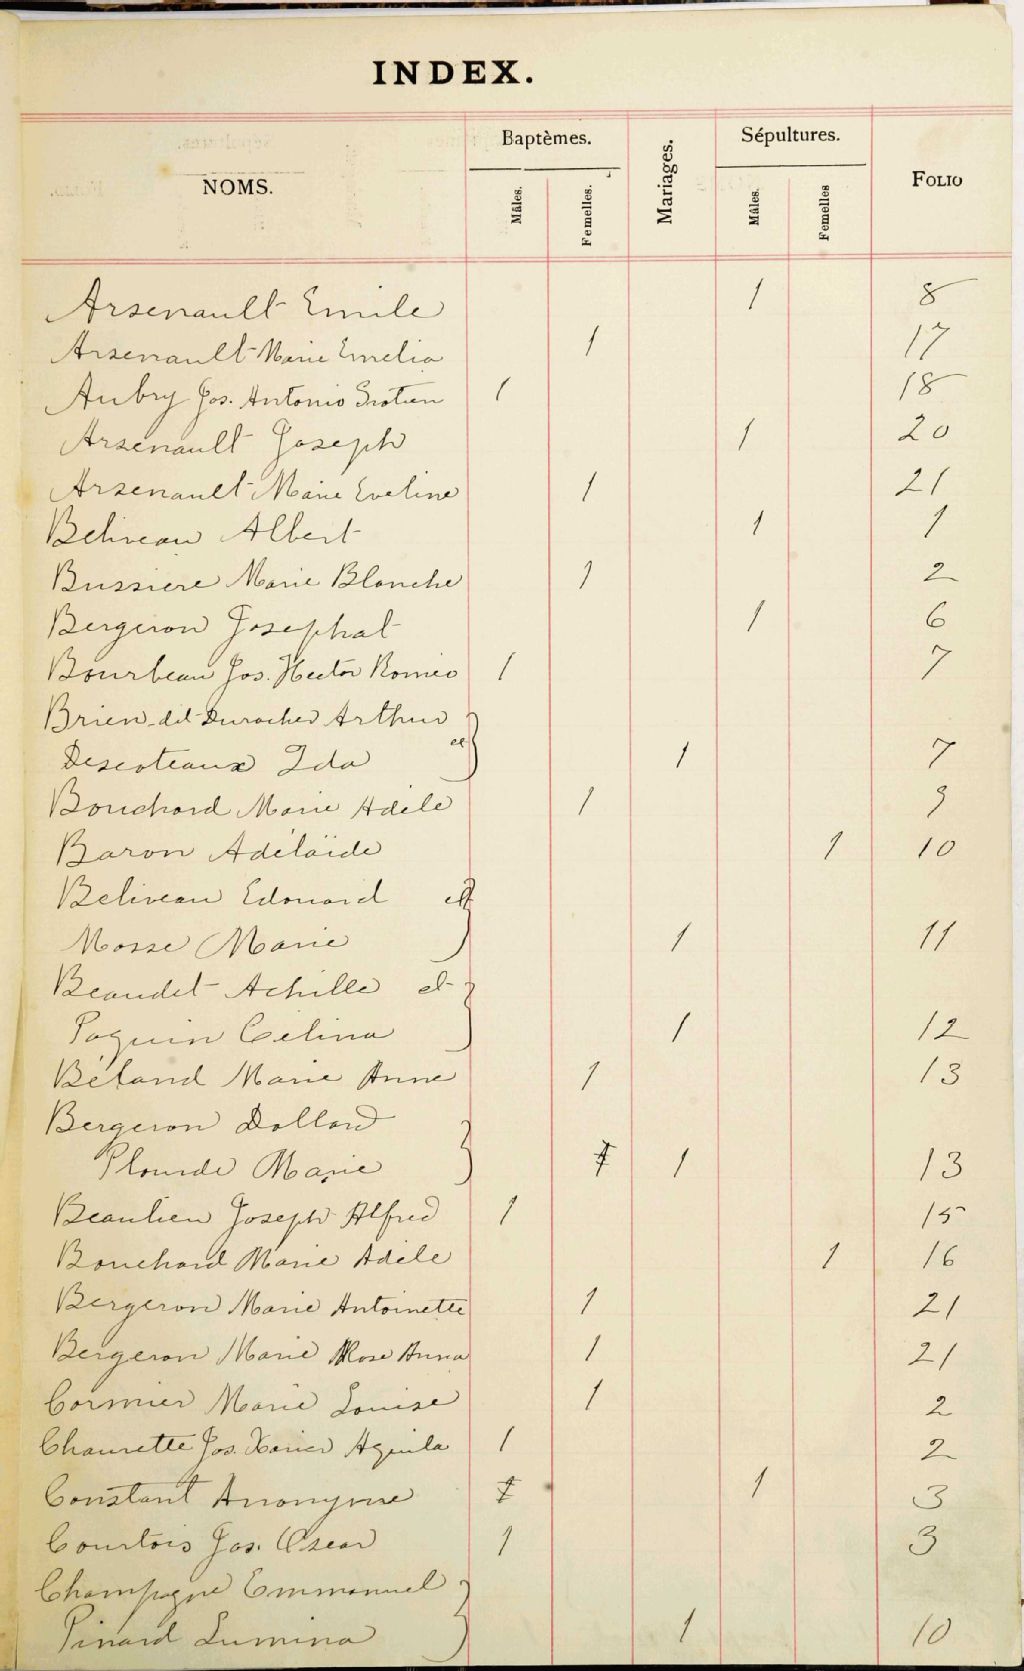 INDEX.
NOMS. Baptèmes. Mariages. Sépultures. FOLIO
Mâles. Femelles. Mâles. Femelles
Arsenault Emile 1 8
Arsenault Marie Emelia 1 17
Aubry Jos. Antonio 1 18
Arsenault Joseph 1 20
Arsenault Marie Eveline 1 21
Beliveau Albert 1 1
Bussiere Marie Blanche 1 2
Bergeron Josephat 1 6
Bourbeau Jos. Hector Romeo 1 7
Brien dit Durocher Arthur et
Descoteaux Ida 1 7
Bouchard Marie Adèle 1 9
Baron Adélaïde 1 10
Beliveau Edouard et
Masse Marie 1 11
Beaudet Achille et
Paquin Célina 1 12
Béland Marie Anne 1 13
Bergeron Dollard
Plourde Marie 1 1 13
Beaulieu Joseph Alfred 1 15
Bouchard Marie Adèle 1 16
Bergeron Marie Antoinette 1 21
Bergeron Marie Rose Anna 1 21
Cormier Marie Louise 1 2
Chaurette Jos. Xavier Aquila 1 2
Constant Anonyme 1 1 3
Courtois Jos. Oscar 1 3
Champagne Emmanuel
Pinard Lumina 1 10